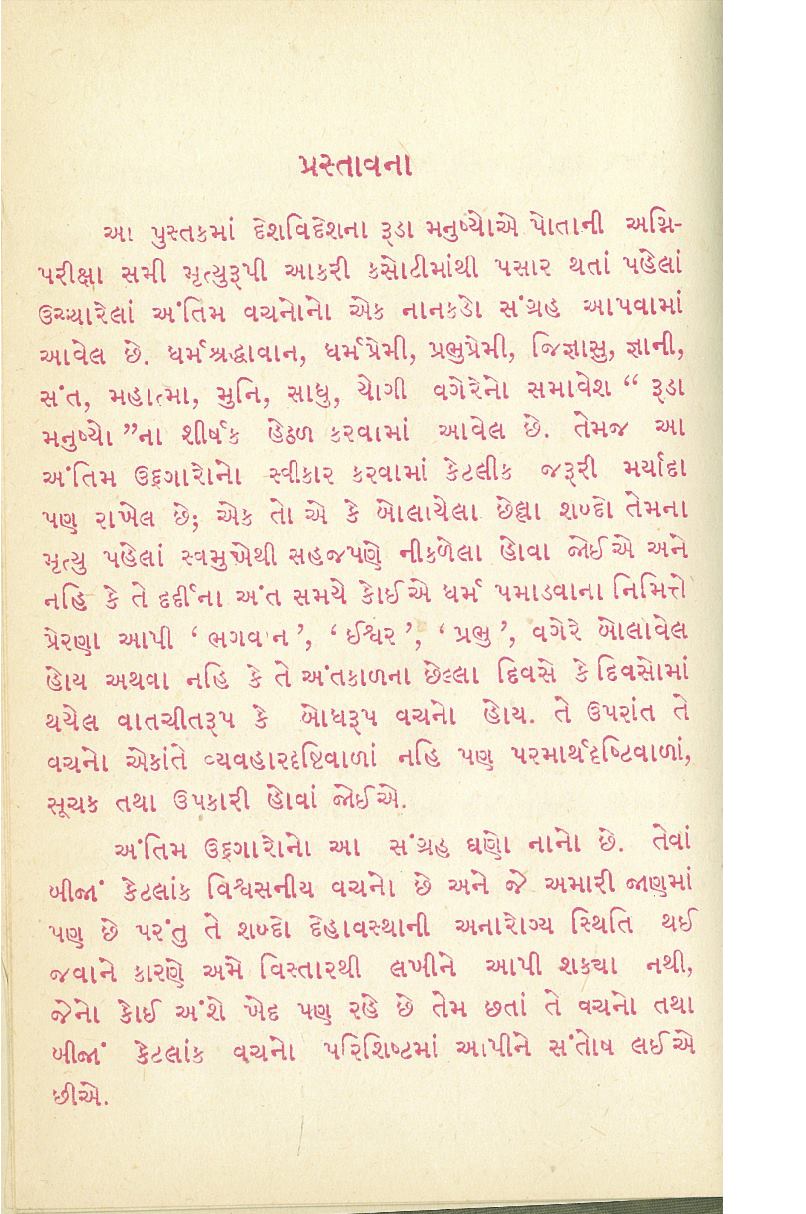 પ્રસ્તાવના
આ પુસ્તકમાં દેશવિદેશના રૂડા મનુષ્યોએ પોતાની અગ્નિ-
પરીક્ષા સમી મૃત્યુરૂપી આકરી કસોટીમાંથી પસાર થતાં પહેલાં
ઉચ્ચારેલાં અંતિમ વચનોનો એક નાનકડો સંગ્રહ આપવામાં
આવેલ છે. ધર્મશ્રદ્ધાવાન, ધર્મપ્રેમી, પ્રભુપ્રેમી, જિજ્ઞાસુ, જ્ઞાની,
સંત, મહાત્મા, મુનિ, સાધુ, યોગી વગેરેનો સમાવેશ “ રૂડા
મનુષ્યો ”ના શીર્ષક હેઠળ કરવામાં આવેલ છે. તેમજ આ
અંતિમ ઉદ્‌ગારોનો સ્વીકાર કરવામાં કેટલીક જરૂરી મર્યાદા
પણ રાખેલ છે; એક તો એ કે બોલાયેલા છેલ્લા શબ્દો તેમના
મૃત્યુ પહેલાં સ્વમુખેથી સહજપણે નીકળેલા હોવા જોઈએ અને
નહિ કે તે દર્દીના અંત સમયે કોઈએ ધર્મ પમાડવાના નિમિત્તે
પ્રેરણા આપી ‘ ભગવાન ’, ‘ ઈશ્વર ’, ‘ પ્રભુ ’, વગેરે બોલાવેલ
હોય અથવા નહિ કે તે અંતકાળના છેલ્લા દિવસે કે દિવસોમાં
થયેલ વાતચીતરૂપ કે બોધરૂપ વચનો હોય. તે ઉપરાંત તે
વચનો એકાંતે વ્યવહારદૃષ્ટિવાળાં નહિ પણ પરમાર્થદૃષ્ટિવાળાં,
સૂચક તથા ઉપકારી હોવાં જોઈએ.
અંતિમ ઉદ્‌ગારોનો આ સંગ્રહ ઘણો નાનો છે. તેવાં
બીજાં કેટલાંક વિશ્વસનીય વચનો છે અને જે અમારી જાણમાં
પણ છે પરંતુ તે શબ્દો દેહાવસ્થાની અનારોગ્ય સ્થિતિ થઈ
જવાને કારણે અમે વિસ્તારથી લખીને આપી શકયા નથી,
જેનો કોઈ અંશે ખેદ પણ રહે છે તેમ છતાં તે વચનો તથા
બીજાં કેટલાંક વચનો પરિશિષ્ટમાં આપીને સંતોષ લઈએ
છીએ.